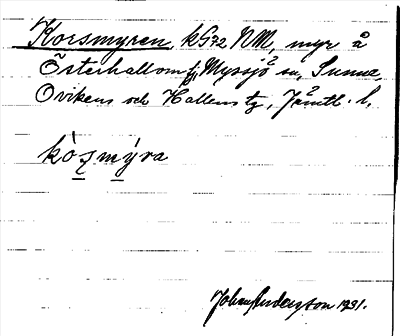 Korsmyren, k572 NM, myr å
Österhallom fj, Myssjö sn, Sunne,
Ovikens och Hallens tg, Jämtl. l.
kòs̱mýra
Johan Anderzson 1931.